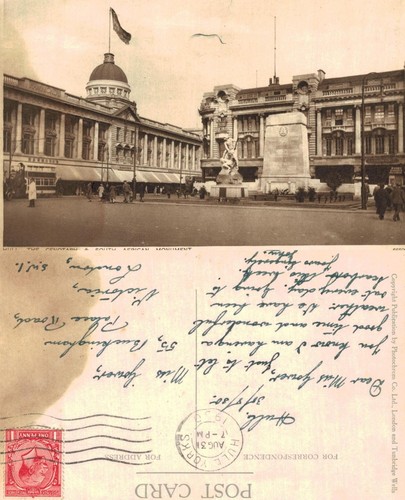 HULL. THE CENOTAPH & SOUTH AFRICAN MONUMENT
POST CARD
FOR CORRESPONDENCE
FOR ADDRESS
Copyright Publication by Photochrom Co. Ltd., London and Tunbridge Wells
HULL
YORKS
7 - PM
AUG 31
Hull,
Dear Miss Gower,
Just to let
you know I am having a
good time and wonderful
weather. We have been
out every day, going to
this week.
Yours sincerely,
Miss Gower,
55, Buckingham
Palace Road,
Victoria,
London,
S.W.1.